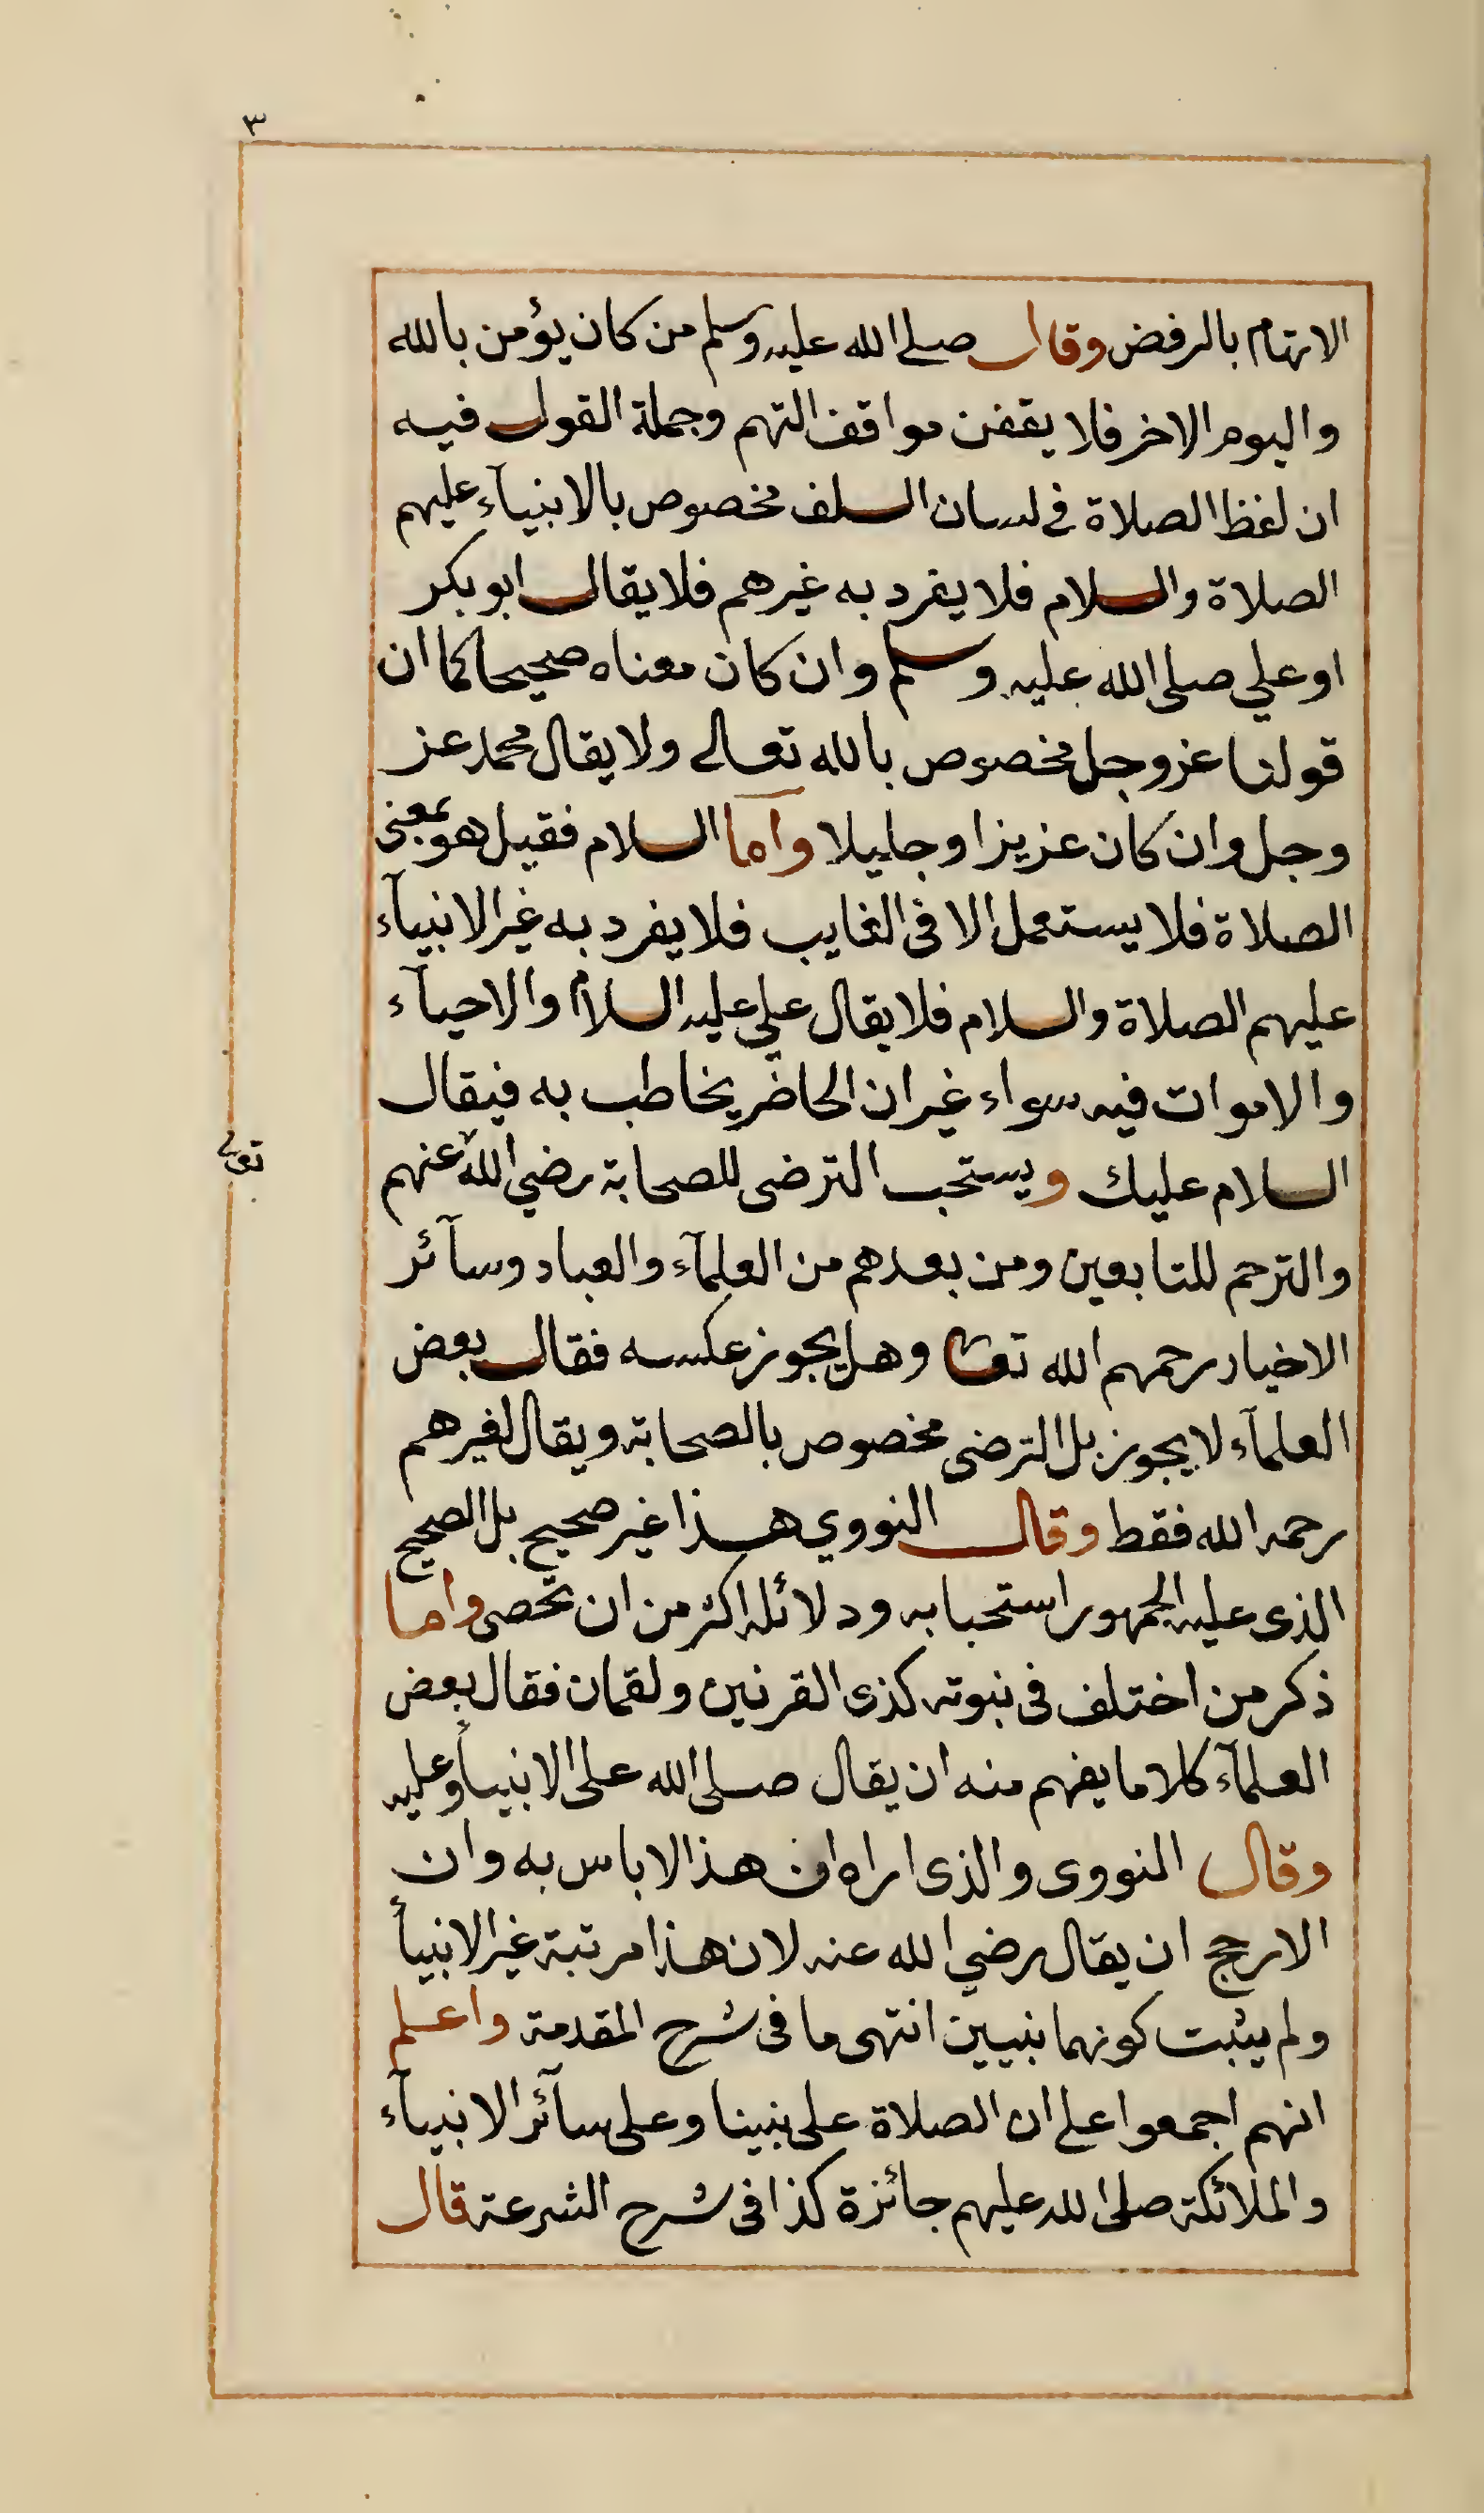 ٣
الاتهام بالرفض وقال صلى الله عليه وسلم من كان يؤمن بالله
واليوم الاخر فلا يقفن مواقف التهم وجملة القول فيه
ان لفظ الصلاة في لسان السلف مخصوص بالانبيآء عليهم
الصلاة والسلام فلا يفرد به غيرهم فلا يقال ابو بكر
او علي صلى الله عليه وسلم وان كان معناه صحيحا كما ان
قولنا عز وجل مخصوص بالله تعالى ولا يقال محمد عز
وجل وان كان عزيزا وجليلا واما السلام فقيل هو بمعنى
الصلاة فلا يستعمل الا فى الغايب فلا يفرد به غير الانبيآء
عليهم الصلاة والسلام فلا يقال علي عليه السلام والاحيآء
والاموات فيه سواء غير ان الحاضر يخاطب به فيقال
السلام عليك ويستحب الترضى للصحابة رضي الله عنهم
تعالى
والترحم للتابعين ومن بعدهم من العلمآء والعباد وسآئر
الاخيار رحمهم الله تعا وهل يجوز عكسه فقال بعض
العلمآء لا يجوز بل الترضى مخصوص بالصحابة ويقال لغيرهم
رحمه الله فقط وقال النووي هذا غير صحيح بل الصحيح
الذى عليه الجمهور استحبابه ودلائله اكثر من ان تحصى واما
ذكر من اختلف فى نبوته كذى القرنين ولقمان فقال بعض
العلمآء كلاما يفهم منه ان يقال صلى الله على الانبيأ وعليه
وقال النووى والذى اراه ان هذا لاباس به وان
الارجح ان يقال رضي الله عنه لان هذا مرتبة غير الانبيأ
ولم يثبت كونهما نبيين انتهى ما فى شرح المقدمة واعلم
انهم اجمعوا على ان الصلاة على نبينا وعلى سآئر الانبيآء
والملائكة صلى الله عليهم جائزة كذا فى شرح الشرعة قال